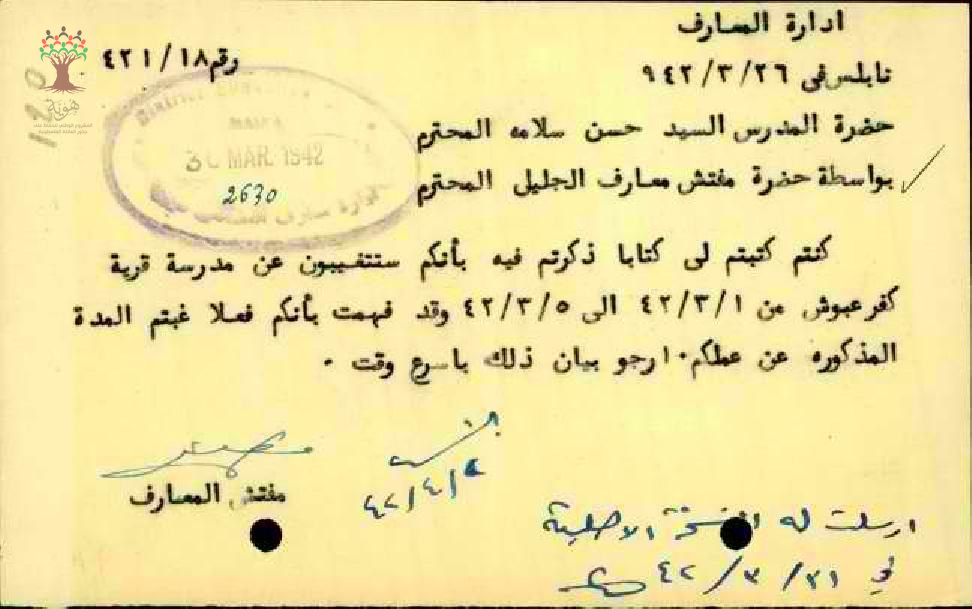 ادارة المعارف
رقم ٤٢١/١٨
نابلس في ٩٤٢/٣/٢٦
حضرة المدرس السيد حسن سلامه المحترم
بواسطة حضرة مفتش معارف الجليل المحترم
30 MAR. 1942
2630
كنتم كتبتم لى كتابا ذكرتم فيه بأنكم ستتغيبون عن مدرسة قرية
كفر عبوش من ٤٢/٣/١ الى ٤٢/٣/٥ وقد فهمت بأنكم فعلا غبتم المدة
المذكوره عن عملكم ٠ ارجو بيان ذلك باسرع وقت ٠
مفتش المعارف
ارسلت له النسخة الاصلية
في ٤٢/٣/٣١
هوية